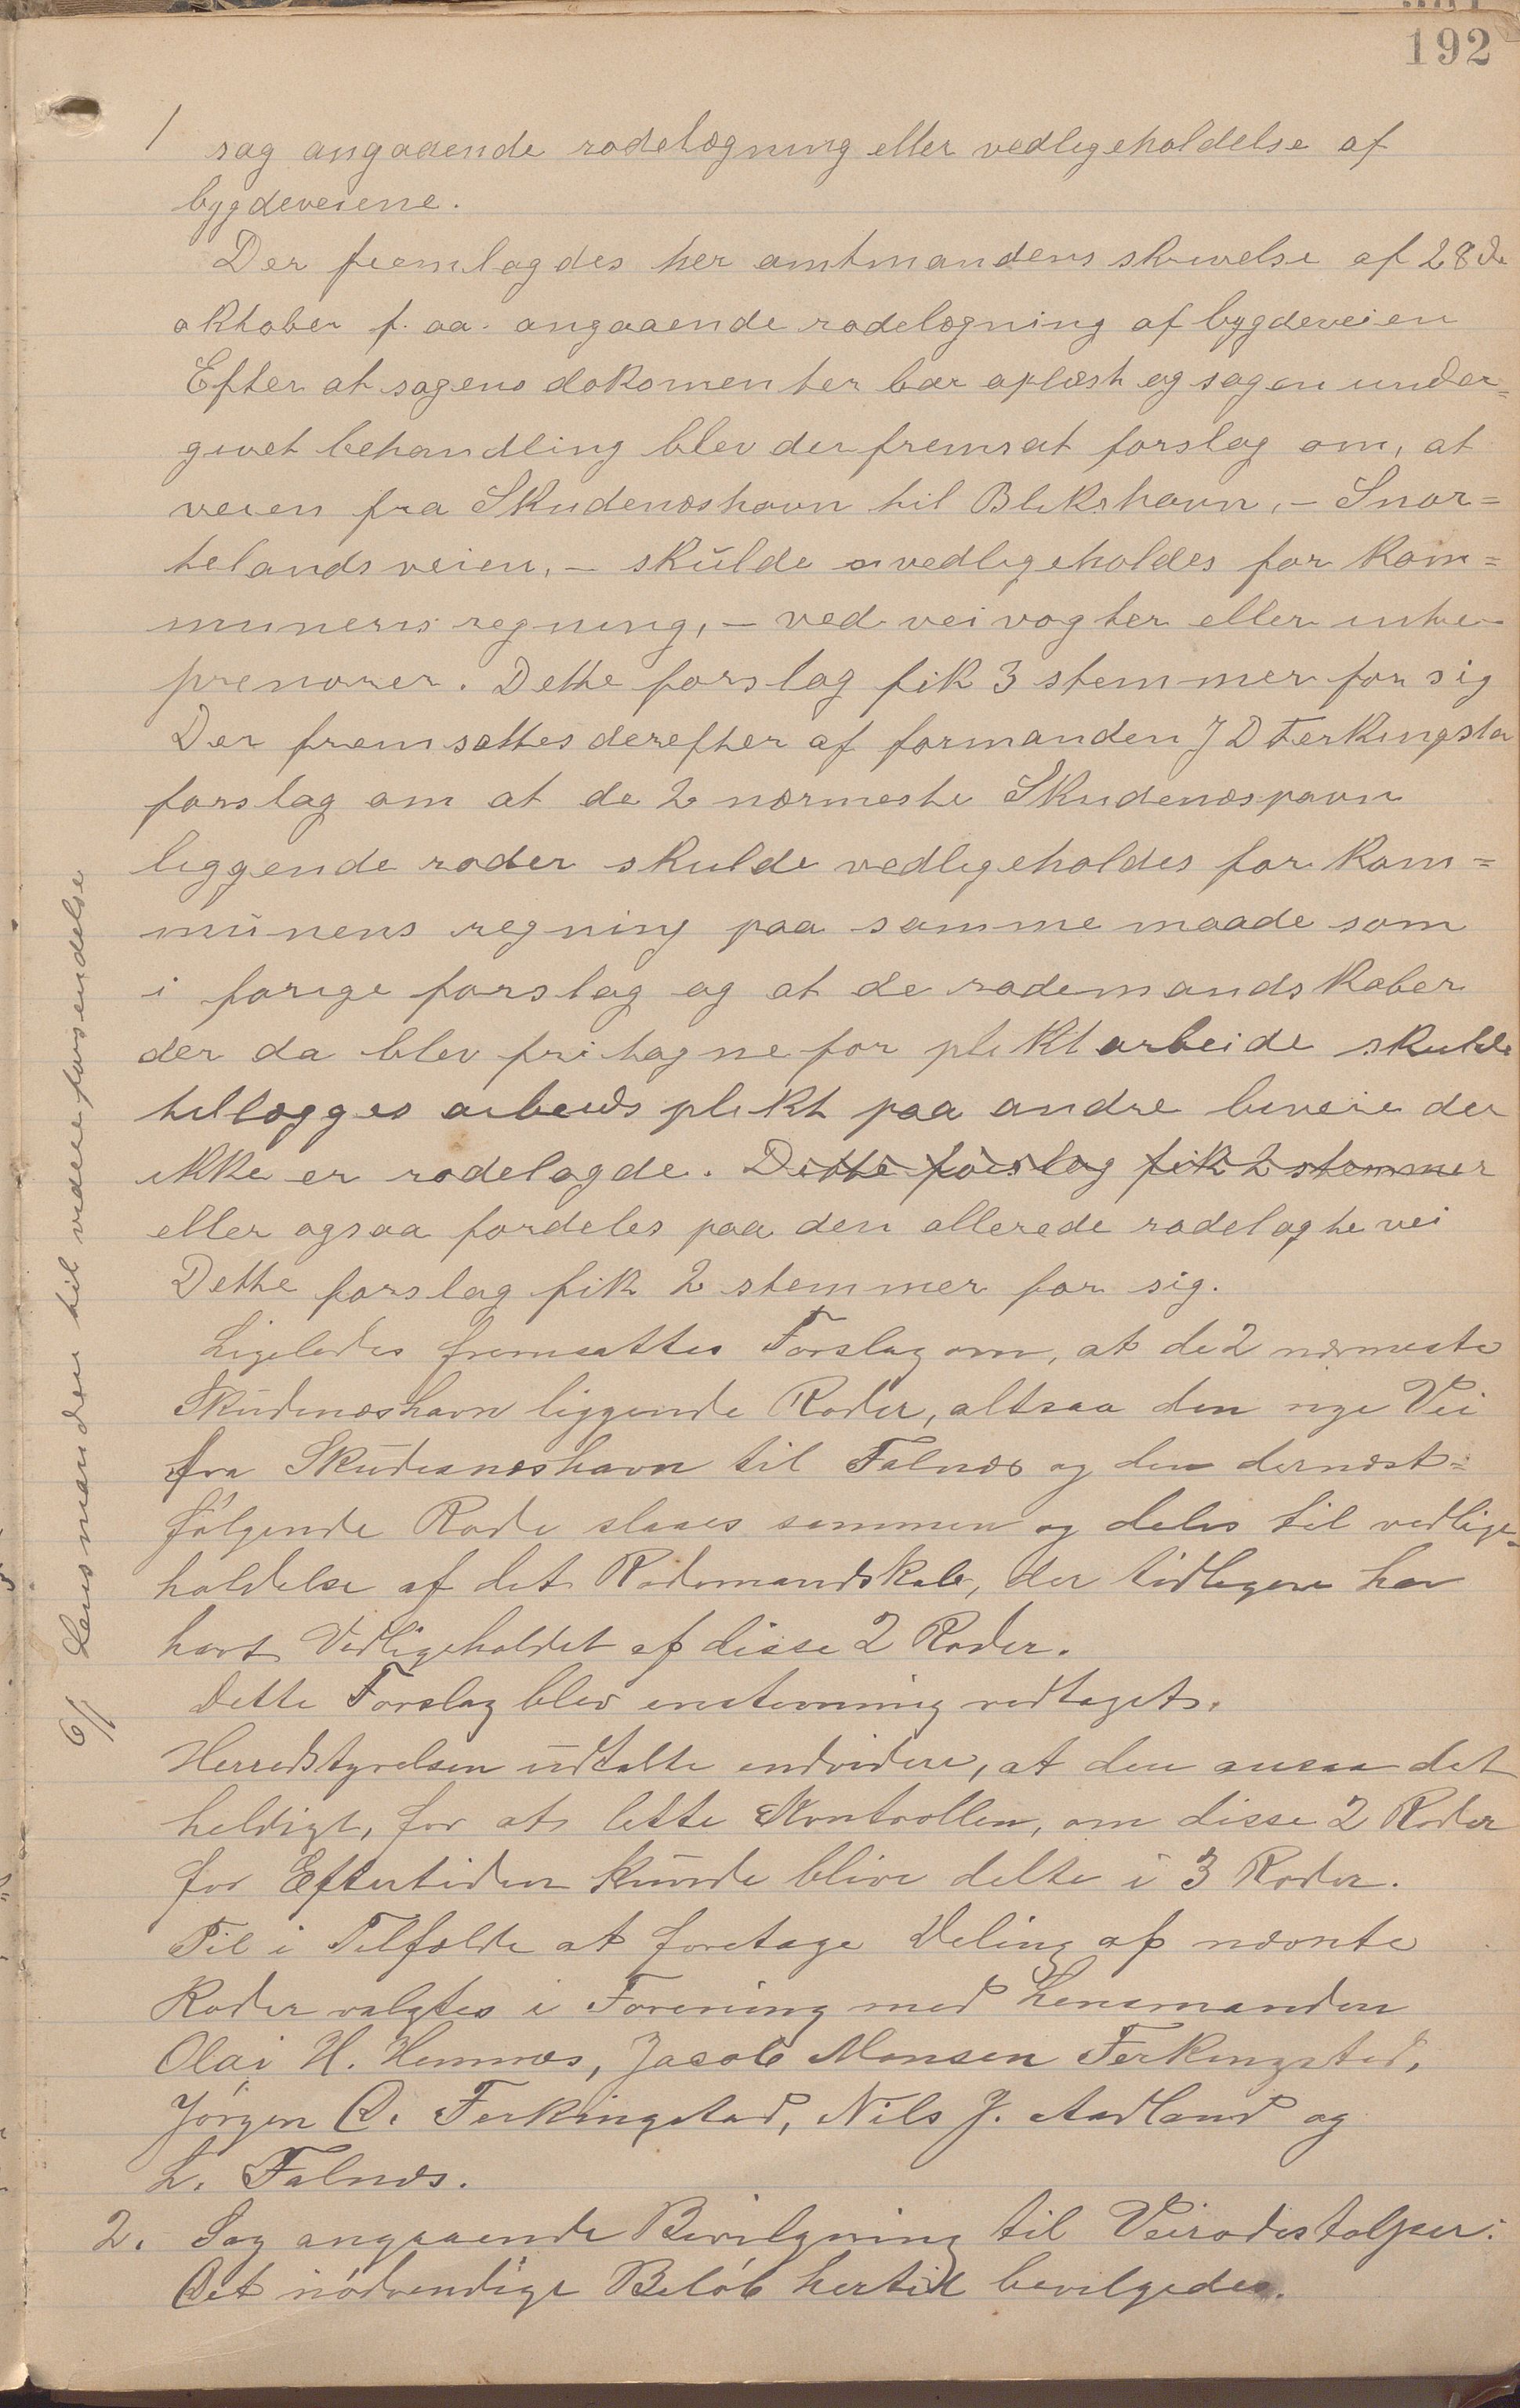 192
1 sag angaaende rodelægning eller vedligeholdelse af
bygdeveiene.
Der fremlagdes her amtmandens skrivelse af 28de
oktober f. aa. angaaende rodelægning af bygdeveien
Efter at sagens dokomenter bær oplæst og sagen under=
givet behandling blev der fremsat forslag om, at
veien fra Skudenæshavn til Blikshavn, – Snor=
telandsveien, – skulde vedligeholdes for kom=
munens regning, – ved veivogter eller entre-
prenører. Dette forslag fik 3 stemmer for sig
Der fremsattes derefter af formanden J D Ferkingsta
forslag om at de 2 nærmeste Skudenæshavn
liggende roder skulde vedligeholdes for kom=
munens regning paa samme maade som
i forige forslag og at de rodemandskaber
der da blev fritagne for pliktarbeide skulde
tillægges arbeids plikt paa andre biveie der
ikke er rodelagde. Dette forslag fik 2 stemmer
eller ogsaa fordeles paa den allerede rodelagte vei
Dette forslag fik 2 stemmer for sig.
Ligeledes fremsattes Forslag om, at de 2 nærmeste
Skudenæshavn liggende Roder, altsaa den nye Vei
fra Skudesneshavn til Falnæs og den dernæst=
følgende Rode slaaes sammen og deles til vedlige-
holdelse af det Rodemandskab, der tidligere har
havt Vedligeholdet af disse 2 Roder.
Dette Forslag blev enstemmig vedtaget.
Herredstyrelsen udtalte endvidere, at den ansaa det
heldigt, for at lette Kontrollen, om disse 2 Roder
for Eftertiden kunde blive delte i 3 Roder.
Til i Tilfælde at foretage Deling af nævnte
Roder valgtes i Forening med Lensmanden
Olai H. Hemnes, Jacob Monsen Ferkingstad,
Jørgen D. Ferkingstad, Nils J. Aadland og
L. Falnæs.
2. Sag angaaende Bevilgning til Veirodestolper:
Det nødvendige Beløb hertil bevilgedes.
6/1 Lensmanden til videre forsendelse